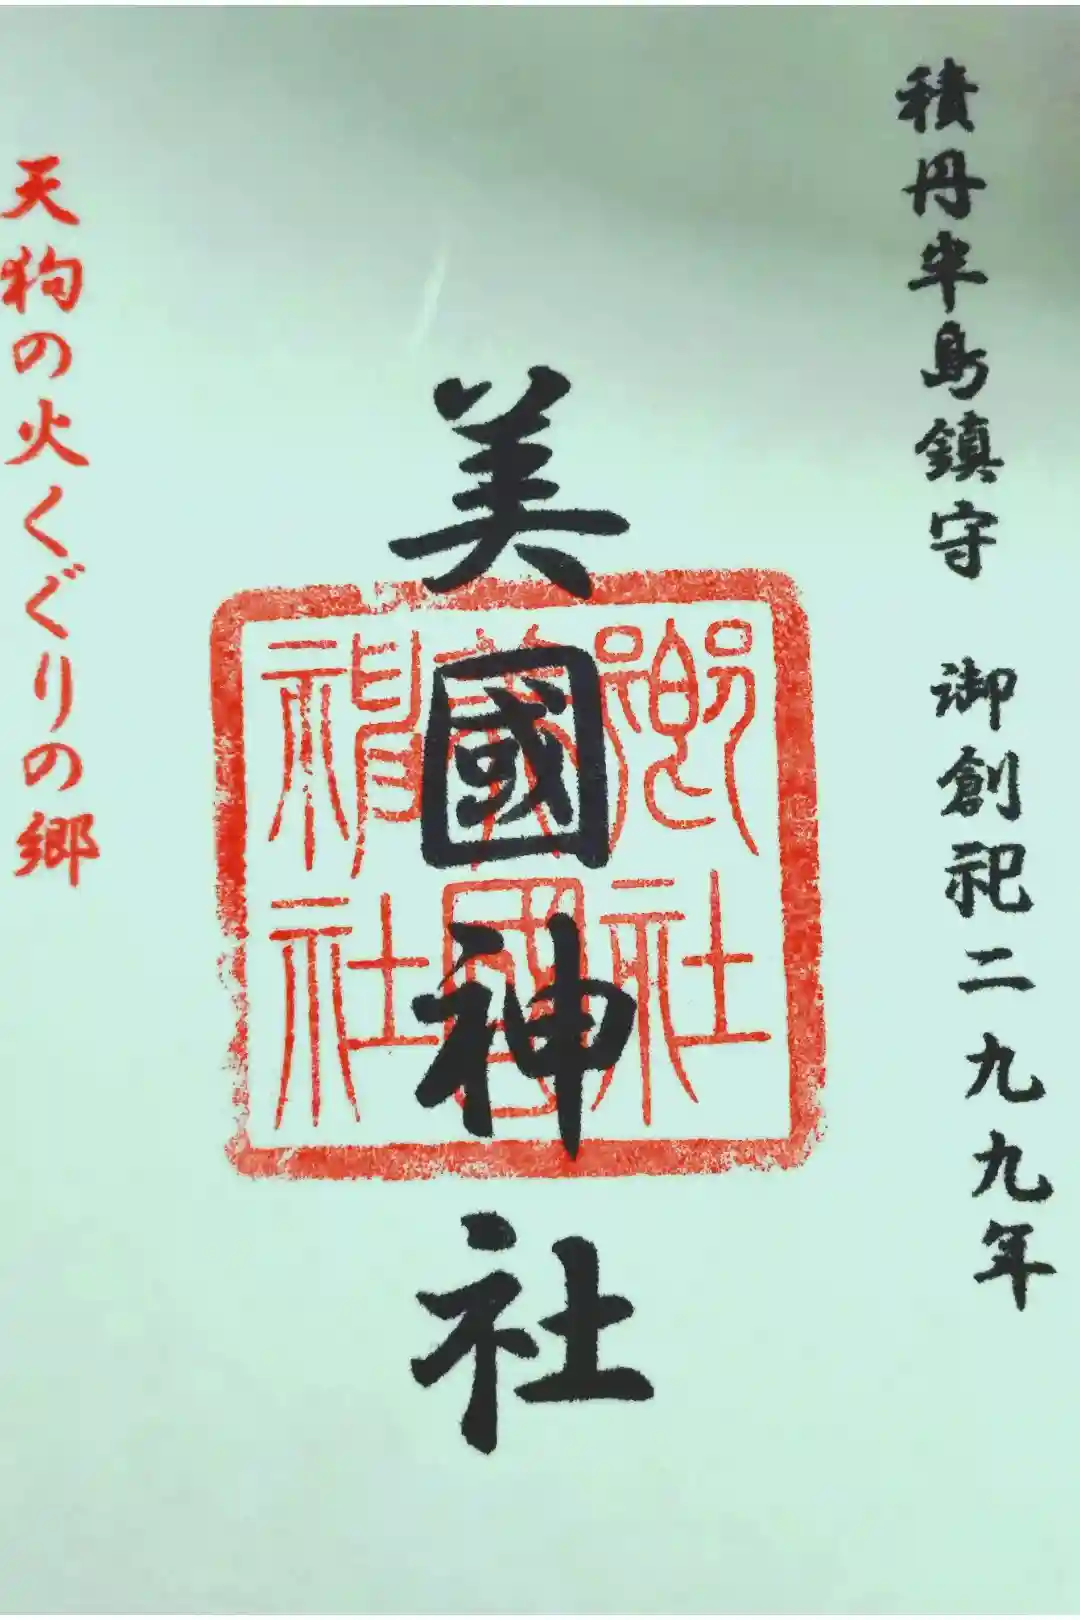 積丹半島鎮守 御創祀二九九年
美國神社
天狗の火くぐりの郷